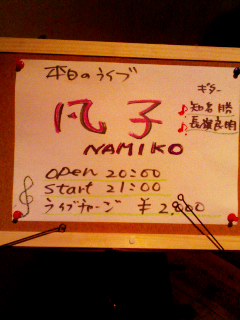 本日のライブ
凡子
NAMIKO
ギター
♪知名勝
♪長嶺良明
open 20:00
start 21:00
ライブチャージ ¥2,800